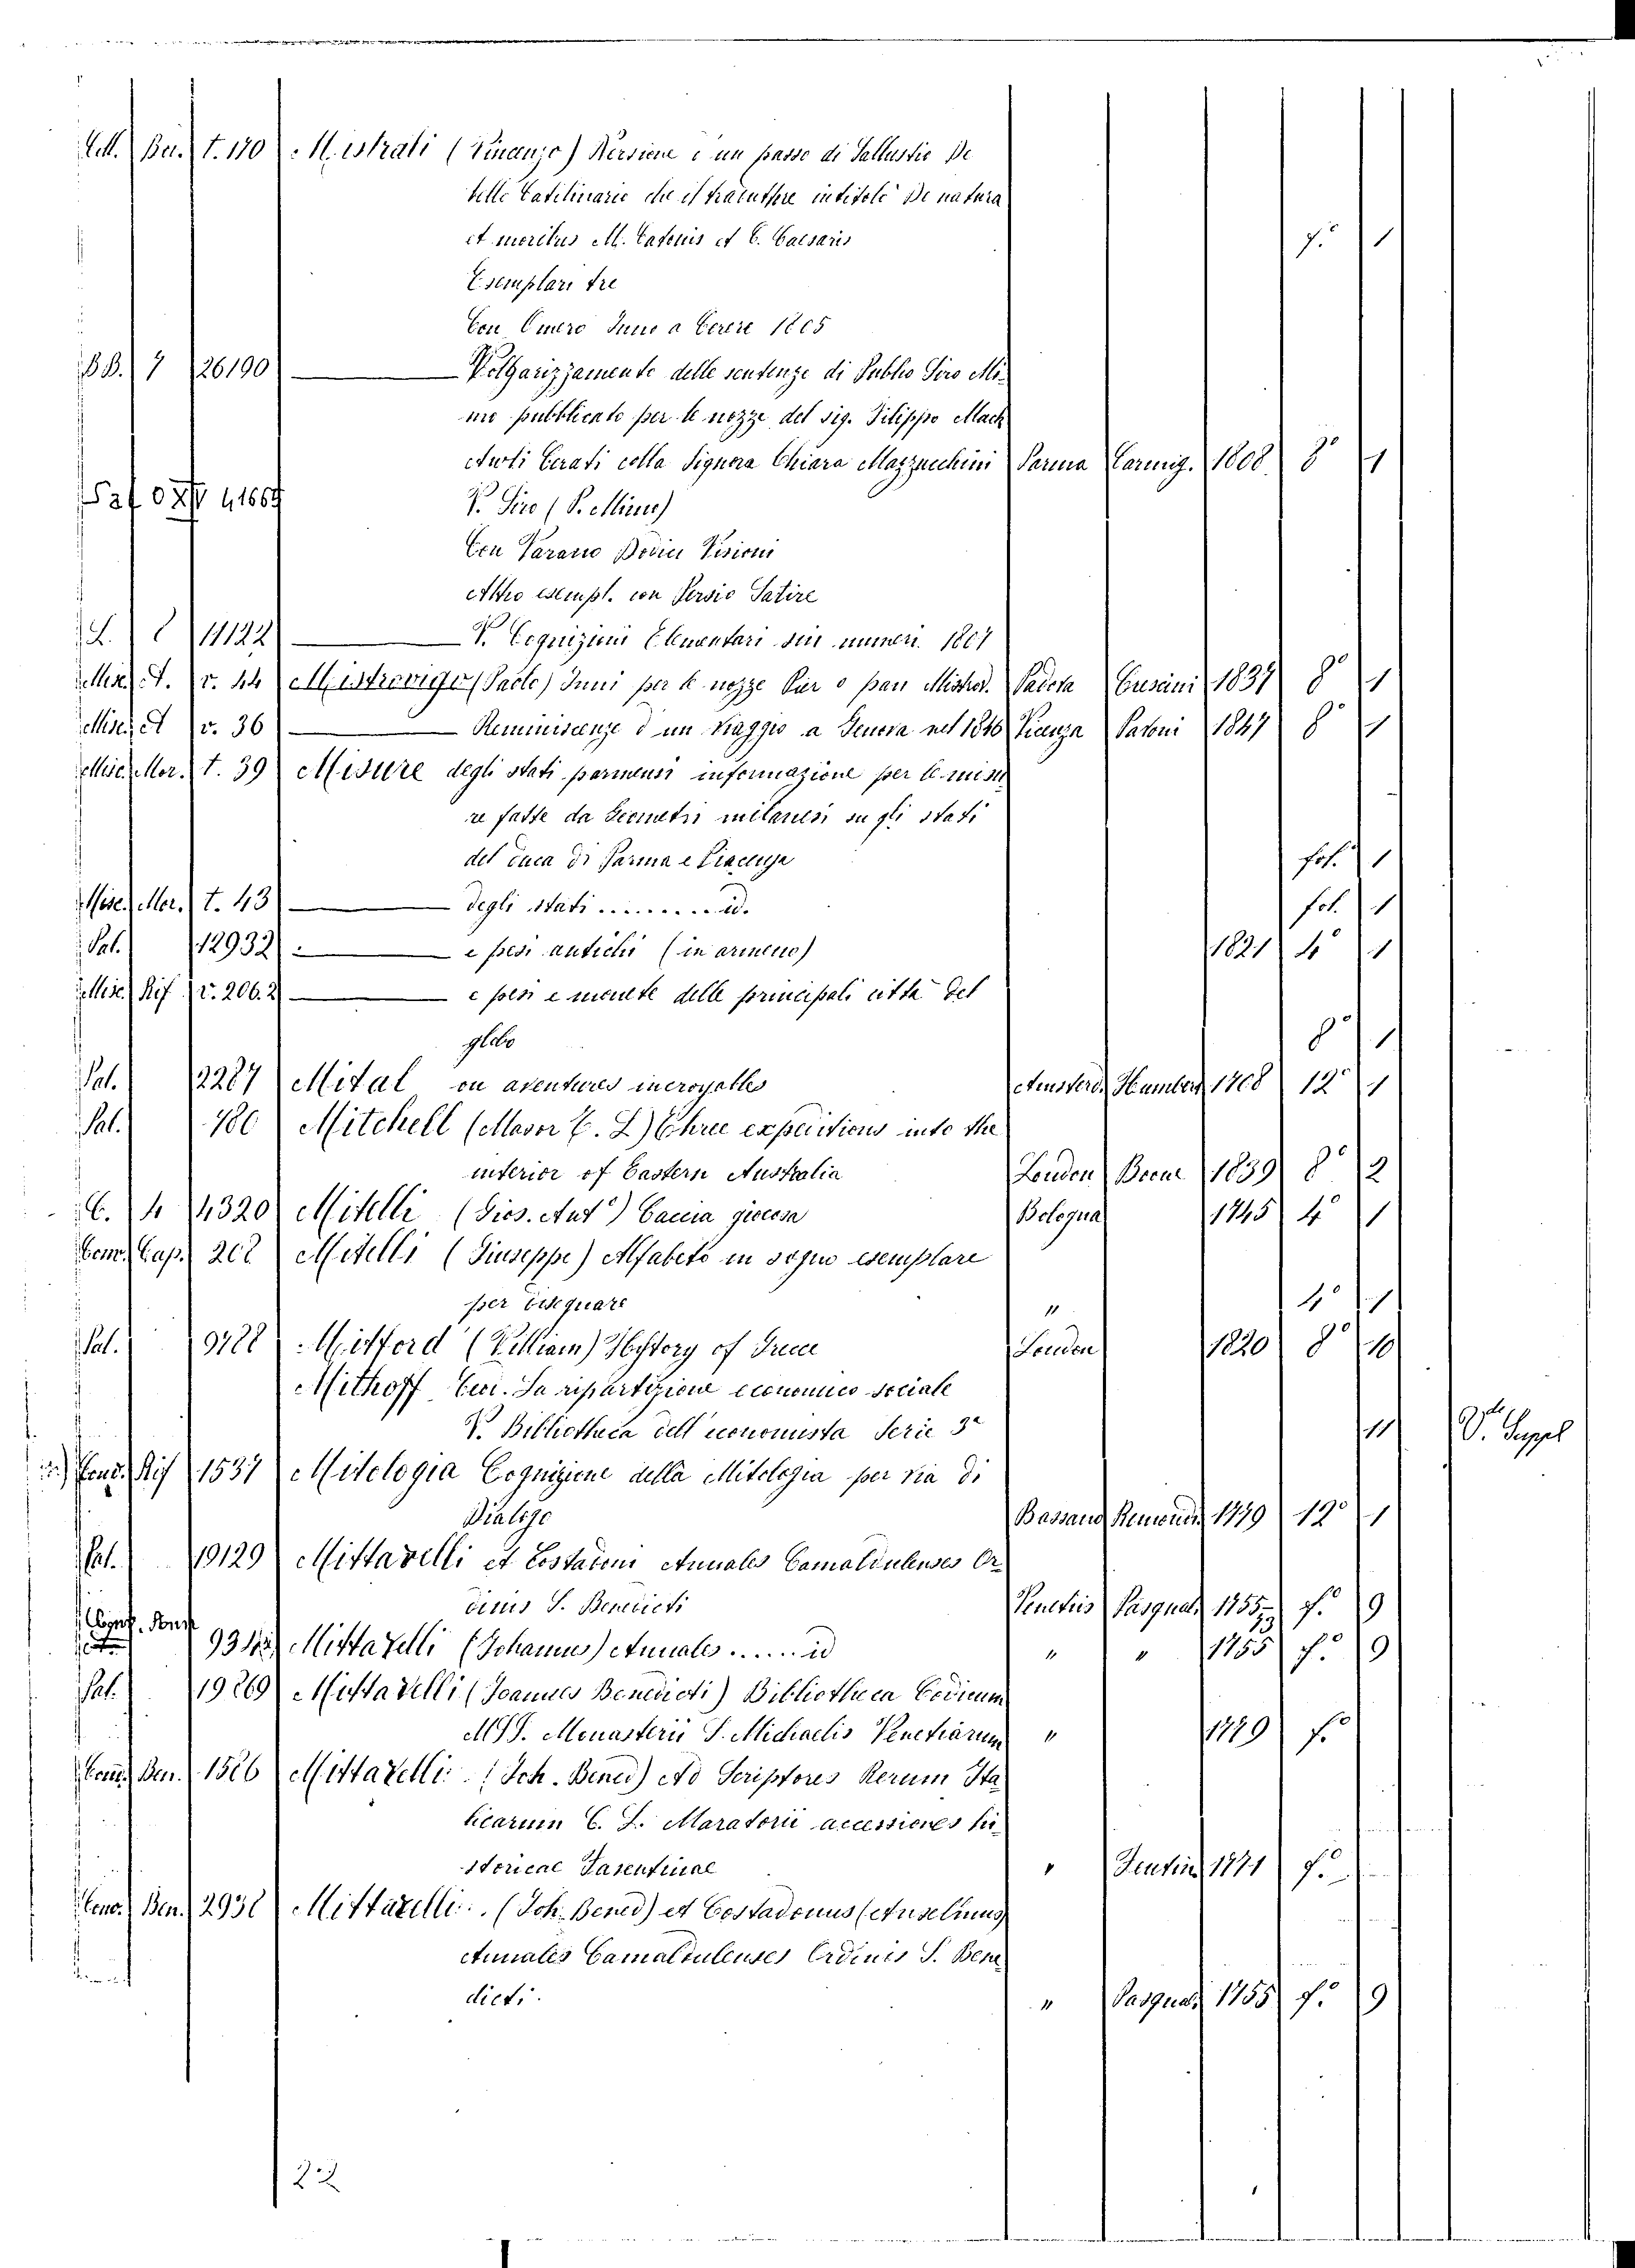 Bei. t. 170 Mistrali (Vincenzo) Versione d'un passo di Sallustio De
belle Catilinario che il traduttore intitolò De natura
et moribus M. Catonis et C. Caesaris f.° 1
Esemplari tre
Con Omero Inno a Cerere 1805
BB. 7 26190 Volgarizzamento delle sentenze di Publio Siro Mi-
mo pubblicato per le nozze del sig. Filippo
Cerati colla Signora Chiara Mazzucchini Parma Carmig. 1808 8° 1
V. Siro (P. Mimo)
Con Varano Visioni
Altro esempl. con Persio Satire
L. 11122 V. Cognizioni Elementari sui numeri. 1807
Misc. A. v. 44 Mistrorigo (Paolo) Inni per le nozze Mistror. Padova 1837 8° 1
Misc. A v. 36 Reminiscenze d'un Viaggio a Genova nel 1846 Vicenza Patoni 1847 8° 1
Misc. Mor. t. 39 Misure degli stati parmensi informazione per le misu
re fatte da Geometri milanesi su gli stati
del Duca di Parma e Piacenza fol. 1
Misc. Mor. t. 43 degli stati .......... id. fol. 1
Pal. 12932 e pesi antichi (in armeno) 1821 4° 1
Misc. Rif v. 206.2 e pesi e monete delle principali città del
globo 8° 1
Pal. 2287 Mital ou aventures incroyables Amsterd. Humbert 1708 12° 1
Pal. 780 Mitchell (Major T. L.) Three expeditions into the
interior of Eastern Australia London Boone 1839 8° 2
C. 4 4320 Mitelli (Gios. Ant°) Caccia giocosa Bologna 1745 4° 1
Conv. Cap. 208 Mitelli (Giuseppe) Alfabeto in sogno esemplare
per disegnare " 4° 1
Pal. 9788 Mitford (William) History of Greece London 1820 8° 10
Mithoff La ripartizione economico sociale
V. Biblioteca dell'economista Serie 3ª 11 V. Suppl
Conv. Rif 1537 Mitologia Cognizione della Mitologia per via di
Dialogo Bassano Remondi. 1779 12° 1
Pal. 19129 Mittarelli et Costadoni Annales Camaldulenses Or
dinis S. Benedicti Venetiis Pasquali 1755-73 f.° 9
Mittarelli (Johannes) Annales ...... id " " 1755 f.° 9
Pal. 19269 Mittarelli (Joannes Benedicti) Bibliotheca Codicum
MSS. Monasterii S. Michaelis Venetiarum " 1779 f.°
Conv. Ben. 1526 Mittarelli (Joh. Bened) Ad Scriptores Rerum Ita
licarum C. L. Muratorii accessiones hi
storicae Faventinae " 1771 f.°
Conv. Ben. 2938 Mittarelli (Joh. Bened) et Costadonus (Anselmus)
Annales Camaldulenses Ordinis S. Bene
dicti. " Pasquali 1755 f.° 9
22